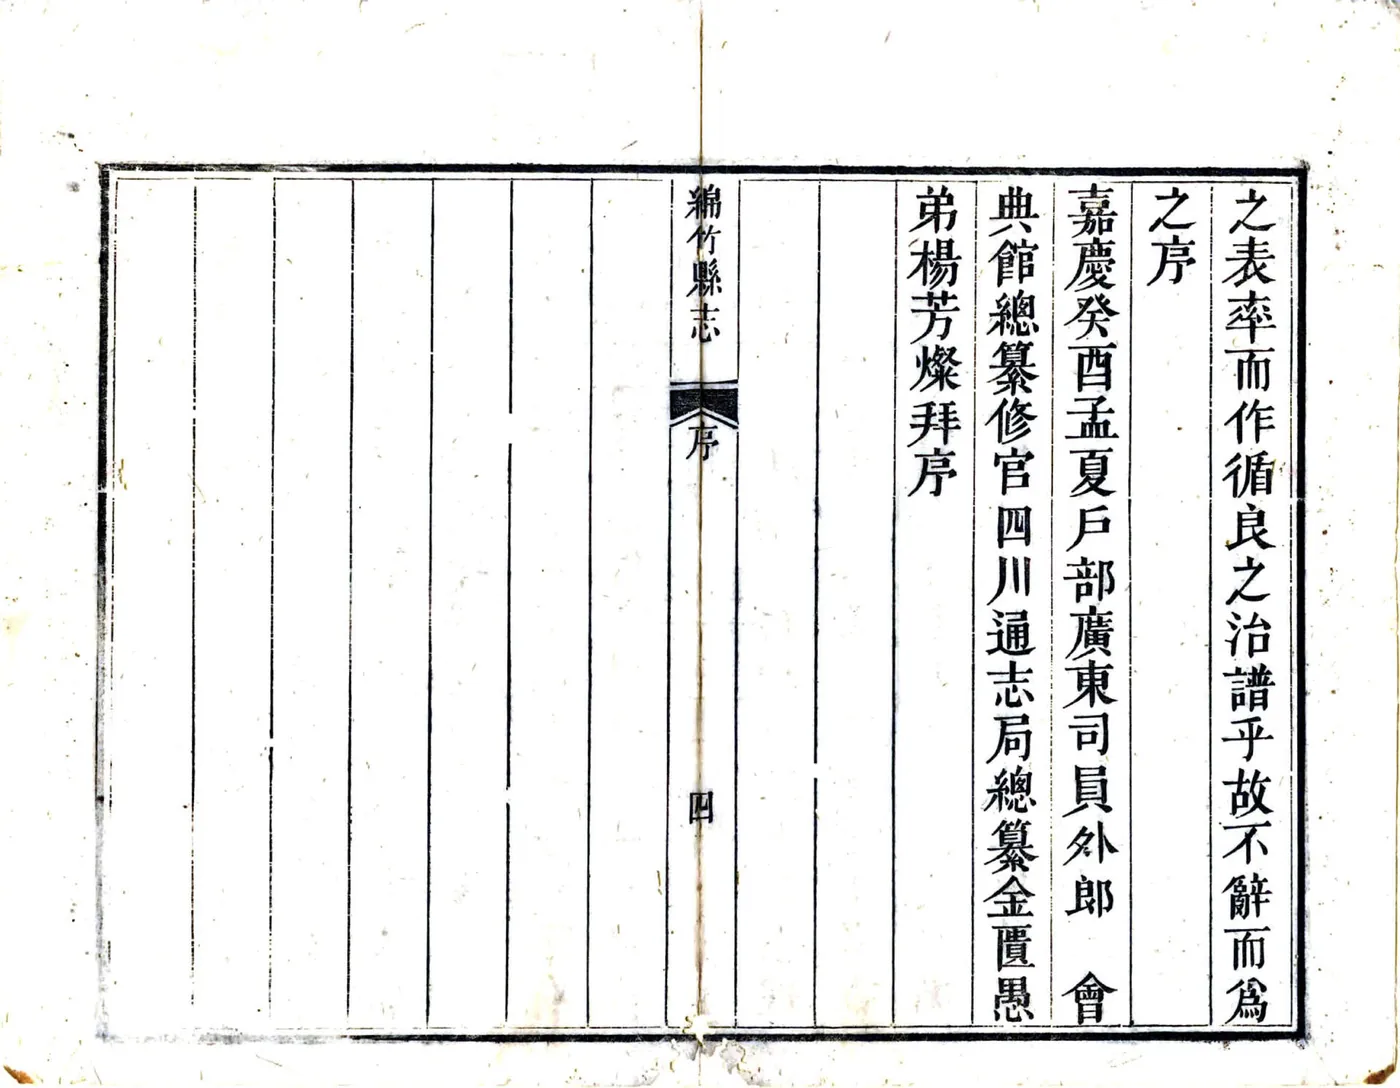 之表率而作循良之治譜乎故不辭而爲
之序
嘉慶癸酉孟夏戶部廣東司員外郎　會
典館總纂修官四川通志局總纂金匱愚
弟楊芳燦拜序
綿竹縣志　序　四